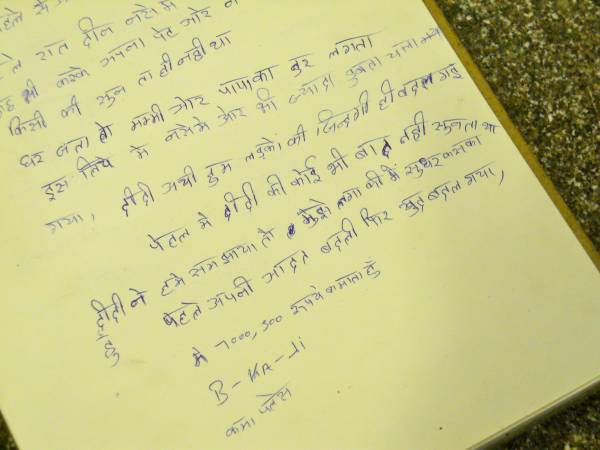 पहले से
रात दीन नशे मे
भी करके अपना पेट और न
किसी की सुन ता ही नही था
घर जता तो मम्मी और पापा का बुर लगता
इस लिये मे नशेमे और भी ज्यादा डुबता चला गया
गया, दीदी अयी हम लडको की जिन्दगी ही बदल गई
पेहल मे दीदी की कोई भी बात नही सुनता था
दीदी ने हमे समझाया तो मुझे लगा की मै सुधर सकता
हु पेहले अपनी आदत बदली फिर खुद बदल गया,
मे 1000, 500 रुपये कमाता हुँ
B-KA-Ji